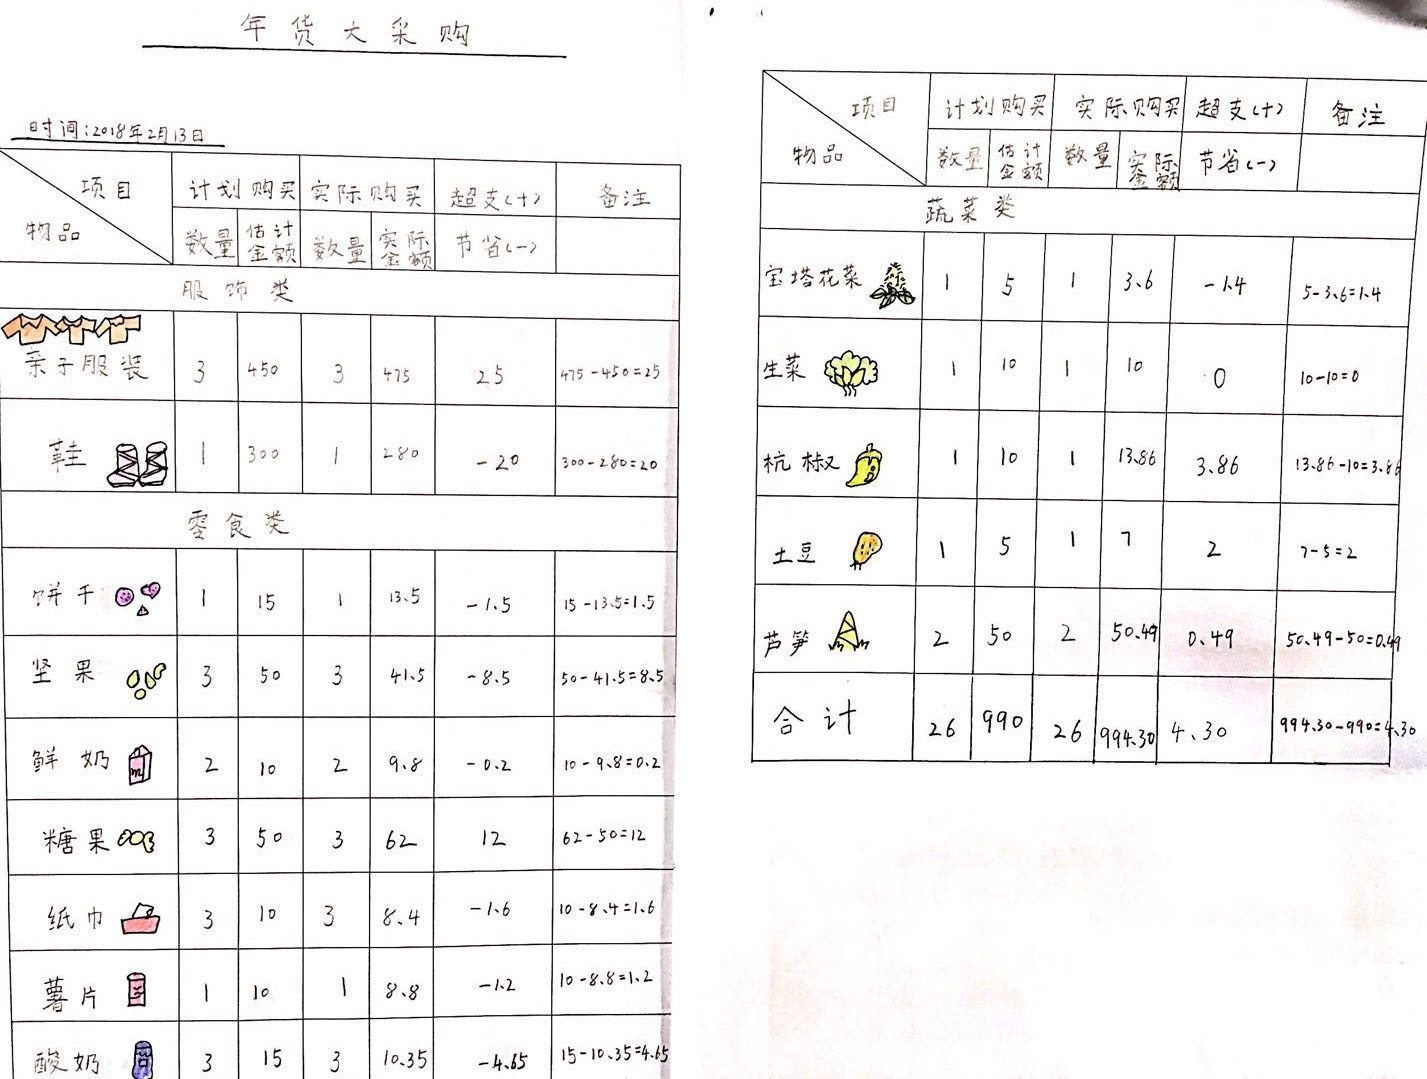 年货大采购
时间:2018年2月13日
项目 计划购买 实际购买 超支(+) 备注
物品 数量 估计金额 数量 实际金额 节省(-)
服饰类
亲子服装 3 450 3 475 25 475-450=25
鞋 1 300 1 280 -20 300-280=20
零食类
饼干 1 15 1 13.5 -1.5 15-13.5=1.5
坚果 3 50 3 41.5 -8.5 50-41.5=8.5
鲜奶 2 10 2 9.8 -0.2 10-9.8=0.2
糖果 3 50 3 62 12 62-50=12
纸巾 3 10 3 8.4 -1.6 10-8.4=1.6
薯片 1 10 1 8.8 -1.2 10-8.8=1.2
酸奶 3 15 3 10.35 -4.65 15-10.35=4.65
项目 计划购买 实际购买 超支(+) 备注
物品 数量 估计金额 数量 实际金额 节省(-)
蔬菜类
宝塔花菜 1 5 1 3.6 -1.4 5-3.6=1.4
生菜 1 10 1 10 0 10-10=0
杭椒 1 10 1 13.86 3.86 13.86-10=3.86
土豆 1 5 1 7 2 7-5=2
芦笋 2 50 2 50.49 0.49 50.49-50=0.49
合计 26 990 26 994.30 4.30 994.30-990=4.30